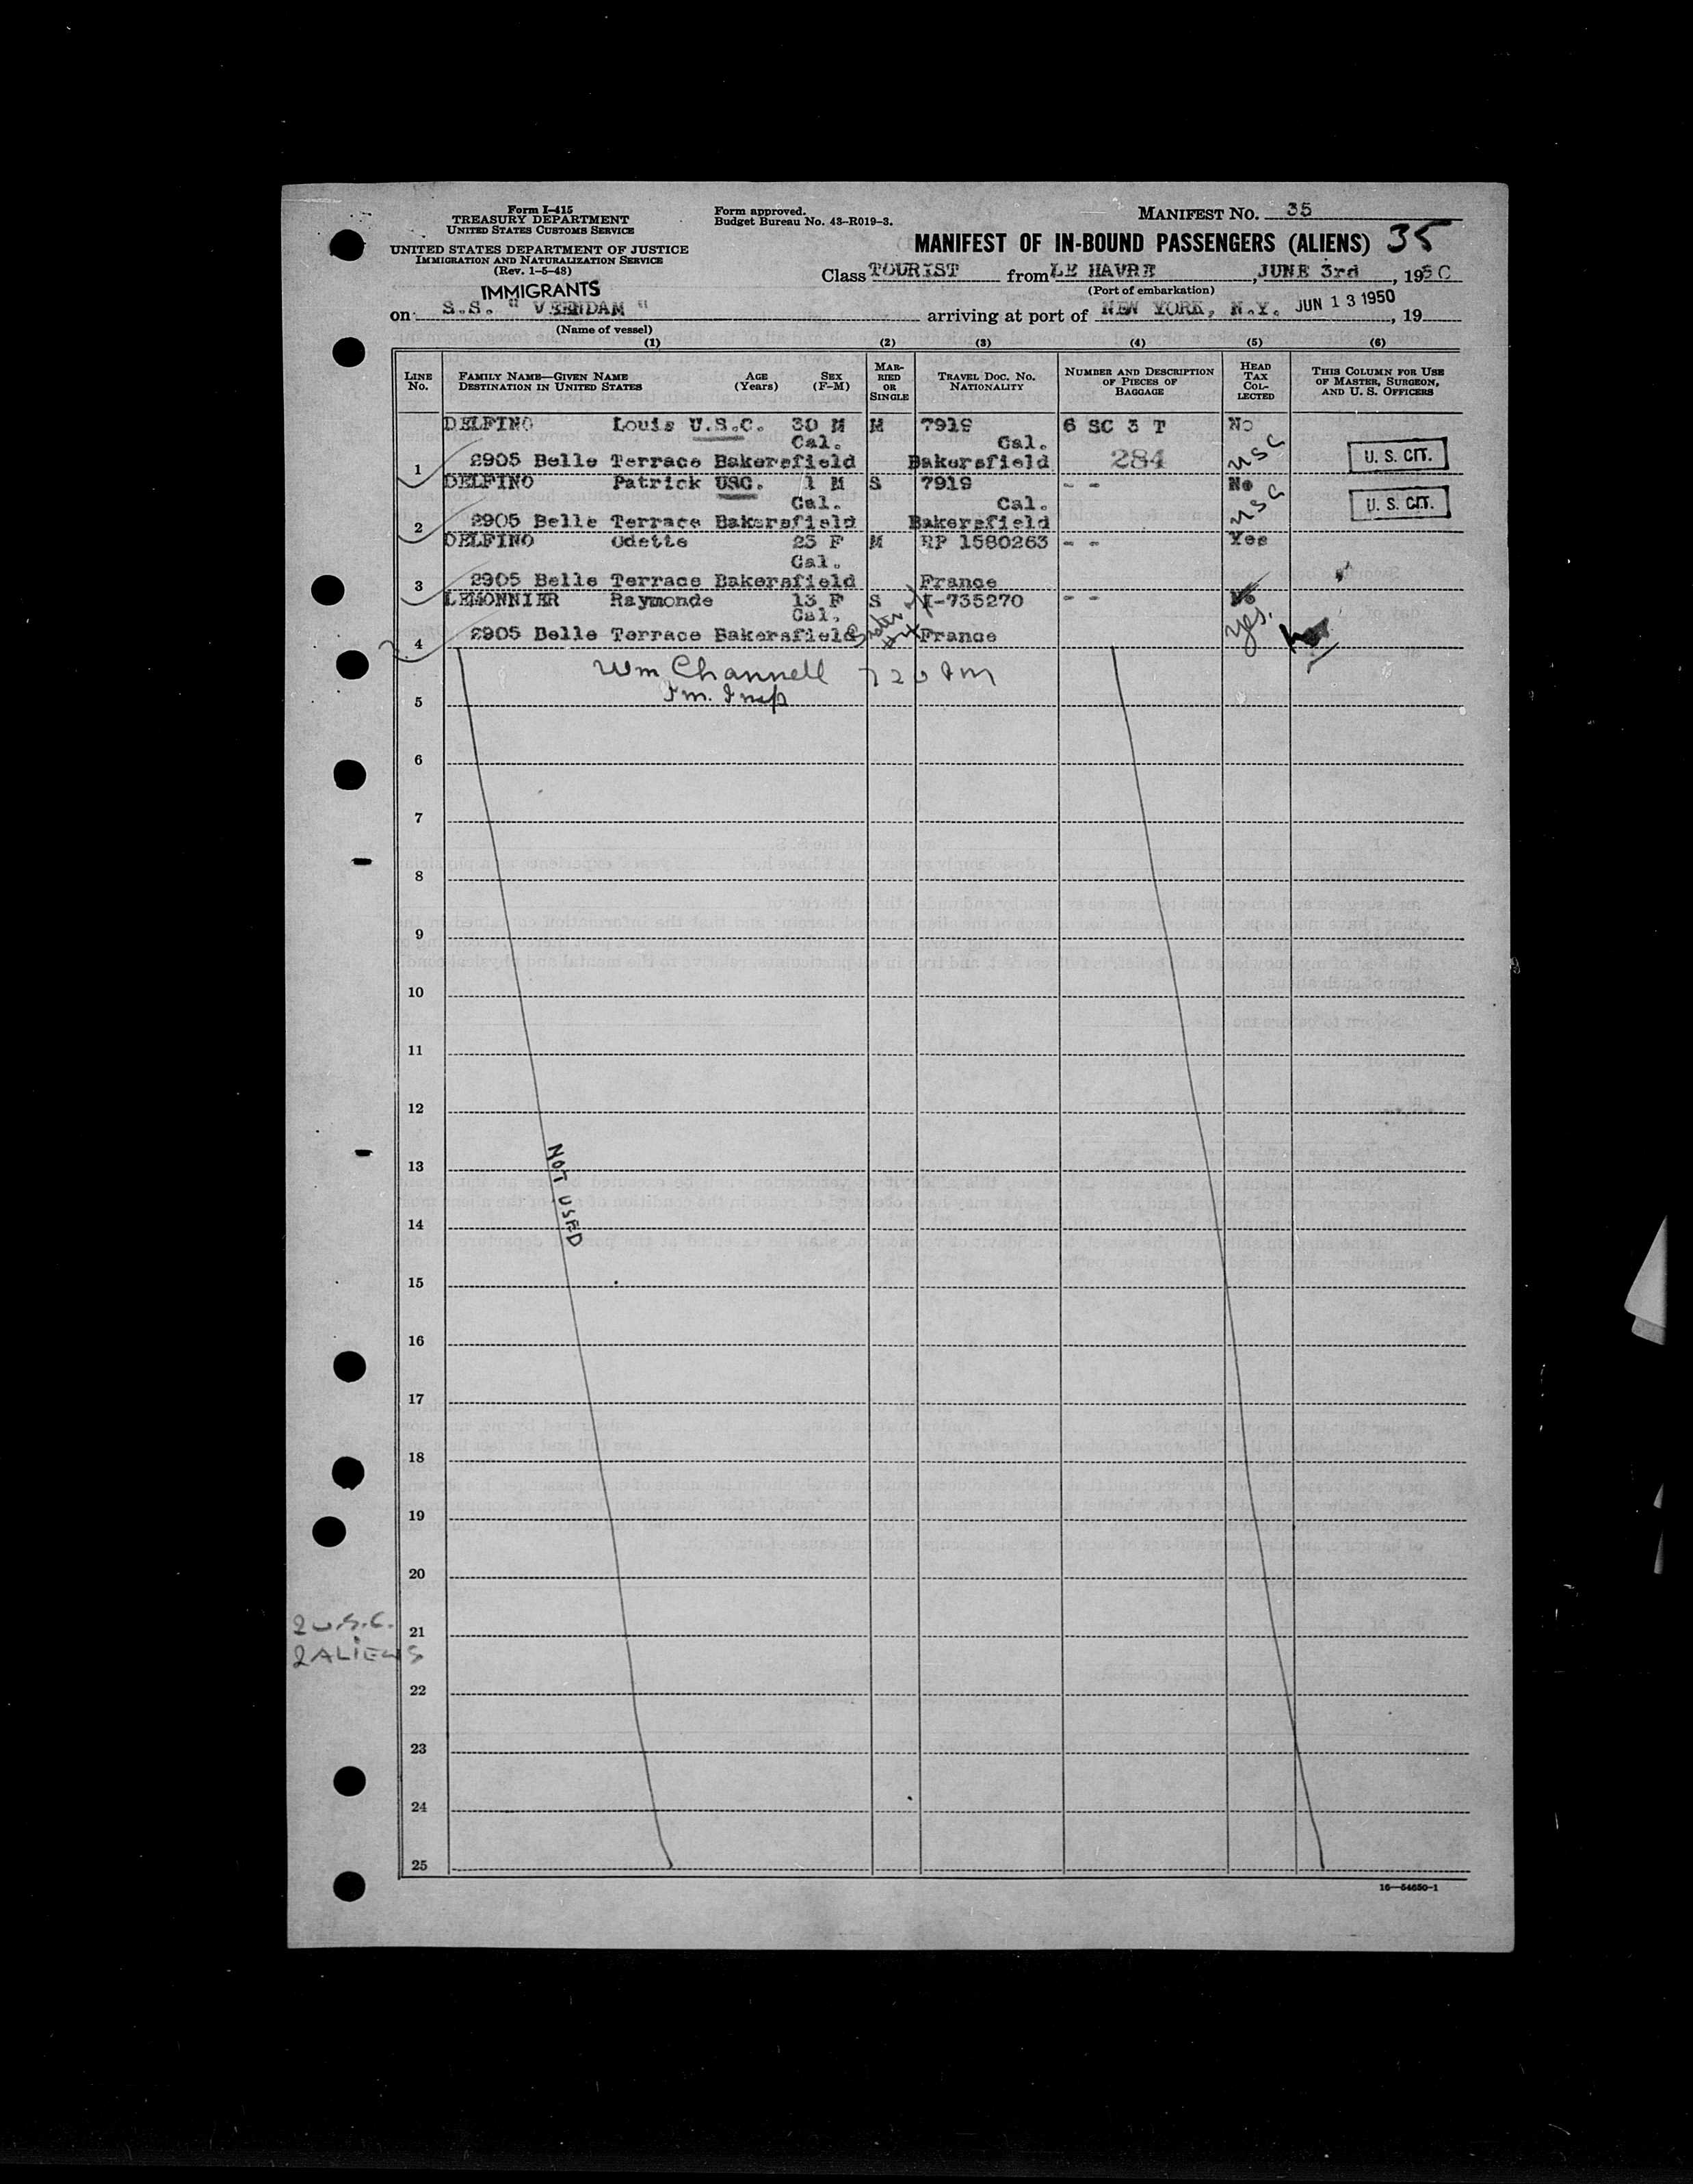 Form I-415
TREASURY DEPARTMENT
UNITED STATES CUSTOMS SERVICE
UNITED STATES DEPARTMENT OF JUSTICE
IMMIGRATION AND NATURALIZATION SERVICE
(Rev. 1-5-48)
IMMIGRANTS
Form approved.
Budget Bureau No. 43-R019-3.
MANIFEST NO. 35
MANIFEST OF IN-BOUND PASSENGERS (ALIENS) 35
Class TOURIST from LE HAVRE, JUNE 3rd, 1950
(Port of embarkation)
on S.S. " VEENDAM " arriving at port of NEW YORK, N.Y. JUN 13 1950, 19
(Name of vessel)
(1) (2) (3) (4) (5) (6)
LINE NO. FAMILY NAME—GIVEN NAME DESTINATION IN UNITED STATES AGE (Years) SEX (F-M) MARRIED OR SINGLE TRAVEL DOC. NO. NATIONALITY NUMBER AND DESCRIPTION OF PIECES OF BAGGAGE HEAD TAX COLLECTED THIS COLUMN FOR USE OF MASTER, SURGEON, AND U. S. OFFICERS
DELFINO Louis U.S.C. 30 M M 7919 6 SC 3 T No
Cal. Cal.
1 2905 Belle Terrace Bakersfield Bakersfield 284 USC U. S. CIT.
DELFINO Patrick USC. 1 M S 7919 - - No
Cal. Cal.
2 2905 Belle Terrace Bakersfield Bakersfield USC U. S. CIT.
DELFINO Odette 23 F M RP 1580263 - - Yes
Cal.
3 2905 Belle Terrace Bakersfield France
LEMONNIER Raymonde 13 F S I-735270 - - No
Cal.
4 2905 Belle Terrace Bakersfield France Yes.
Wm Channell 720 AM
Im. Insp
5
6
7
8
9
10
11
12
13
NOT USED
14
15
16
17
18
19
20
2 U.S.C.
21
2 ALIENS
22
23
24
25
16—54650-1